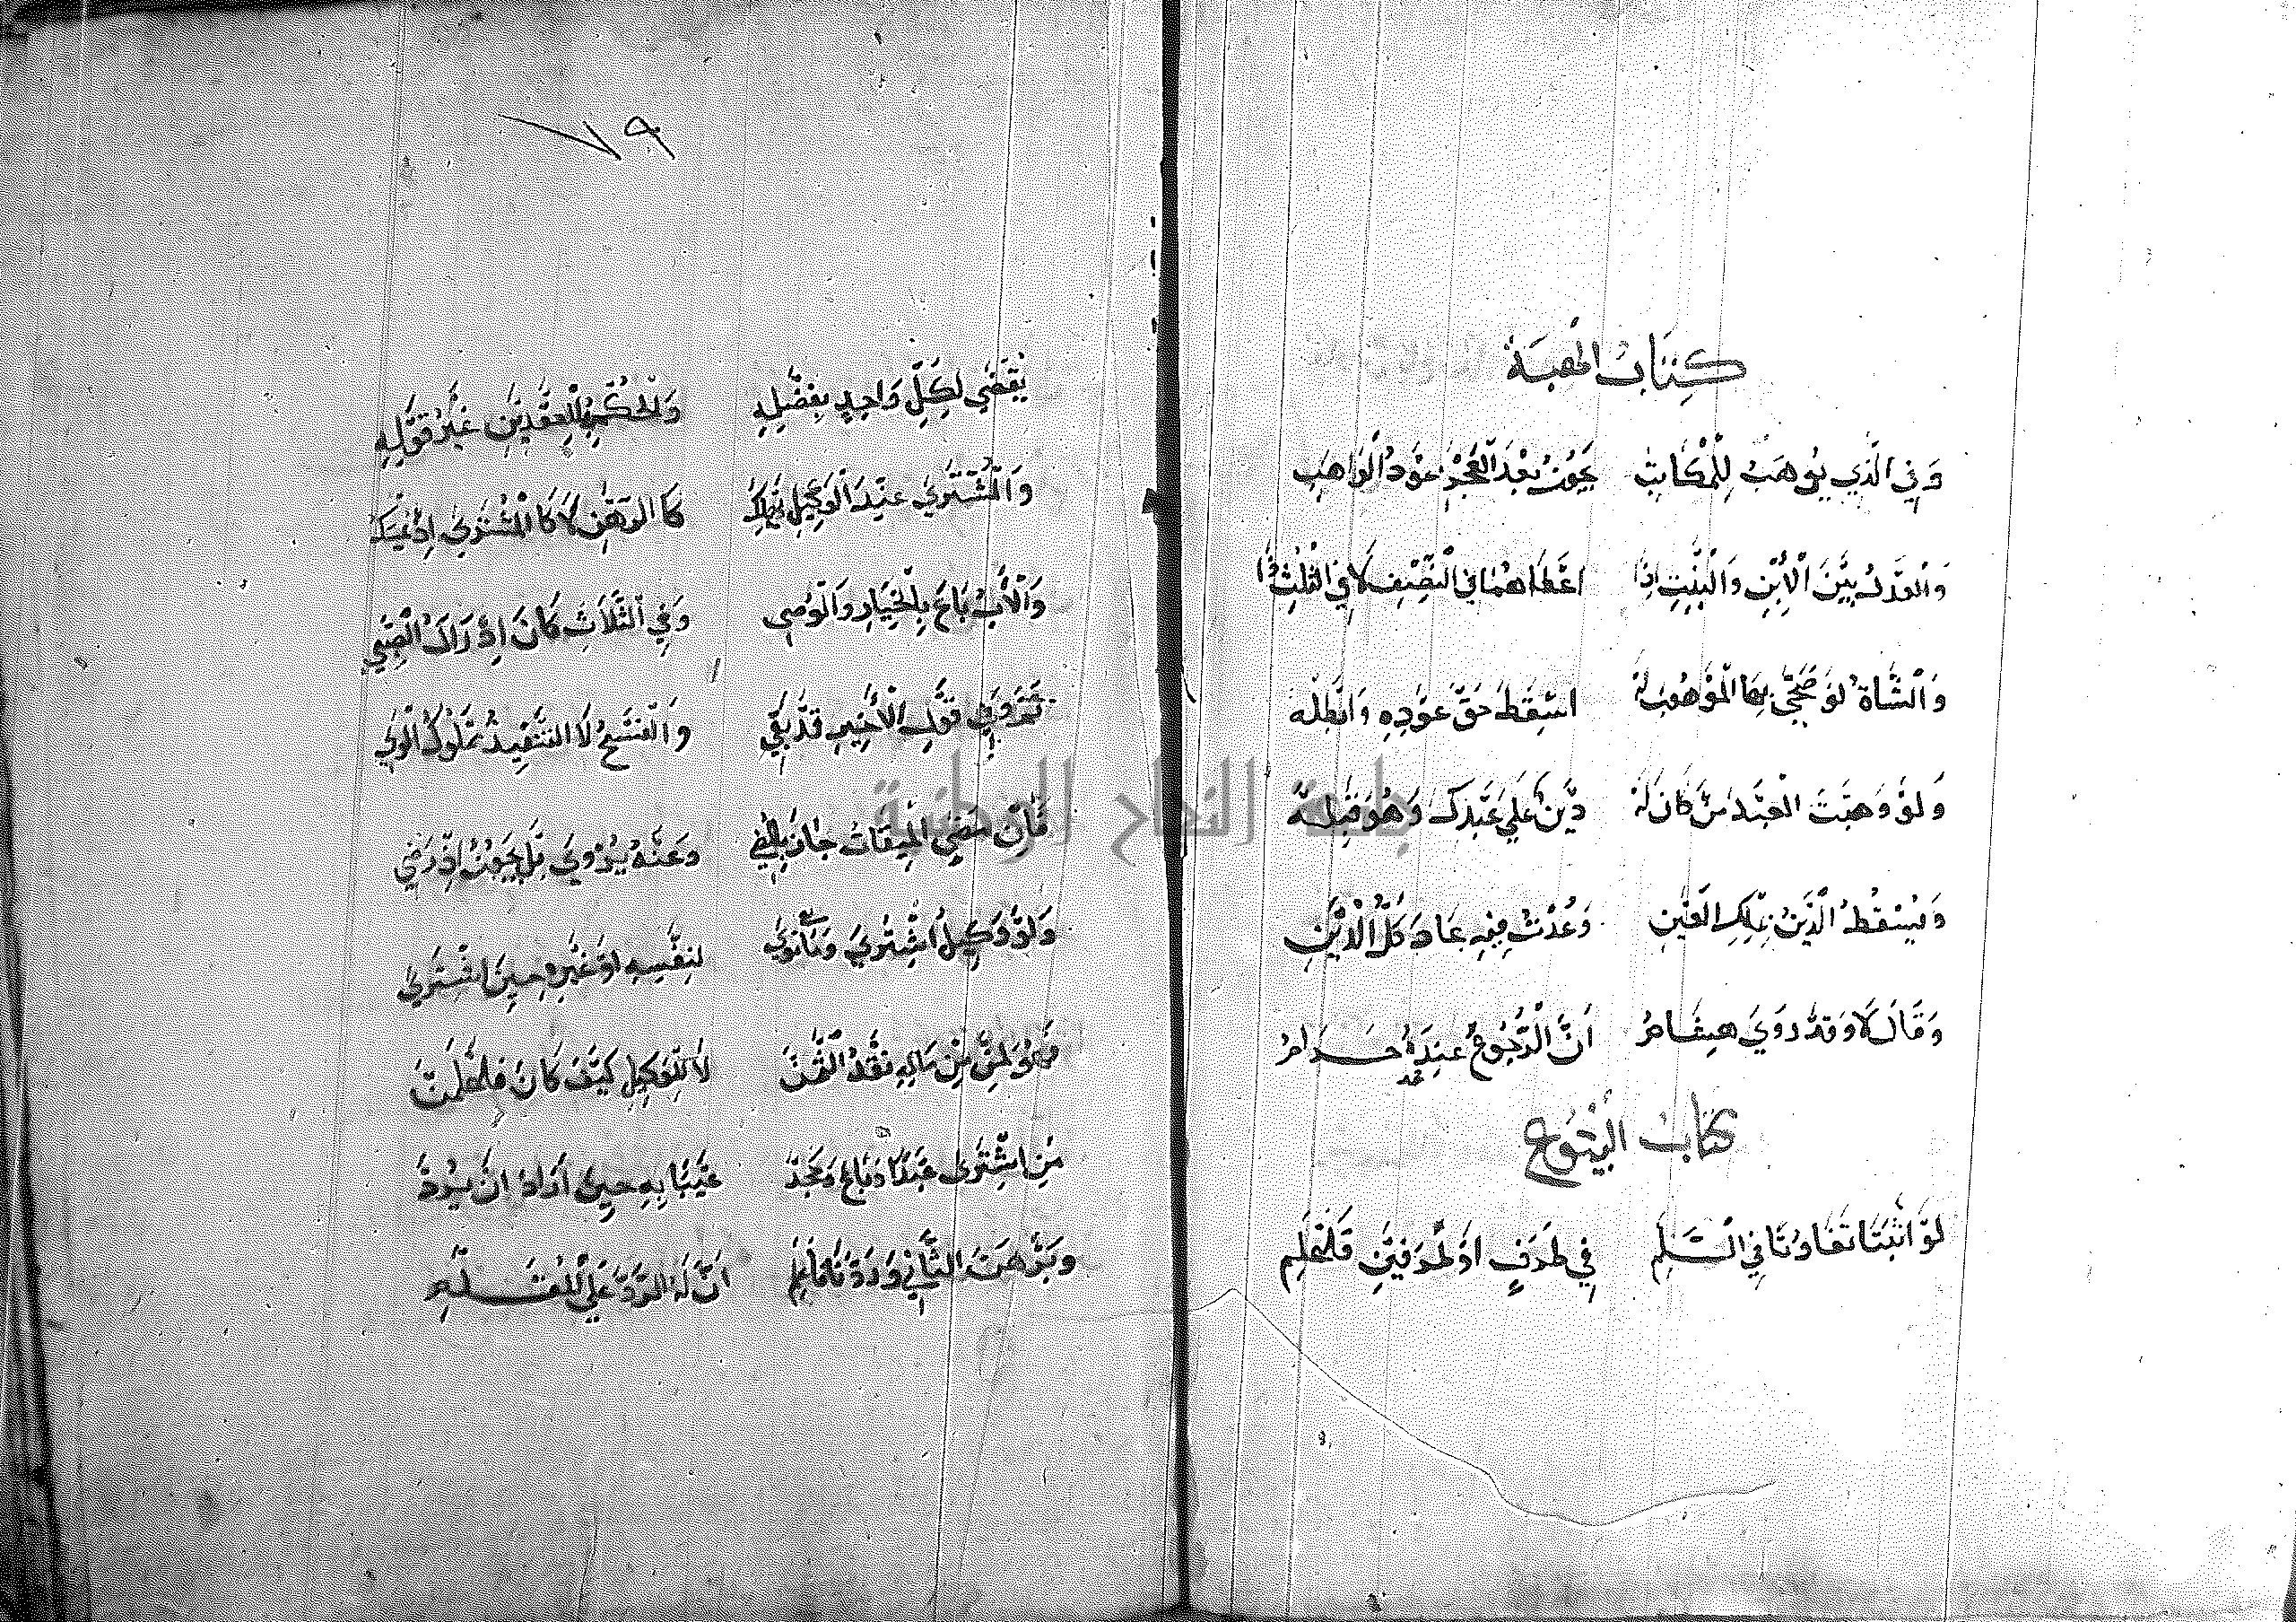 كِتَابُ الْهِبَةِ
وَفِي الَّذِي يُوهَبُ لِلْمُكَاتَبِ يَجُوزُ بَعْدَ الْعَجْزِ عَوْدُ الْوَاهِبِ
وَالْعَدْلُ بَيْنَ الْابْنِ وَالْبِنْتِ إِذَا اعْطَاهُمَا فِي النِّصْفِ لَا فِي الثُّلْثِ ذَا
وَالشَّاةُ لَوْ ضَحَّى بِهَا الْمَوْهُوبُ لَهْ اسْقَطَ حَقَّ عَوْدِهِ وَابْطَلَهْ
وَلَوْ وَهَبْتَ الْعَبْدَ مَنْ كَانَ لَهُ دَيْنٌ عَلَى عَبْدِكَ وَهُوَ قَبِلَهُ
وَيَسْقُطُ الدَّيْنُ بِمِلْكِ الْعَيْنِ وَعُدْتَ فِيهِ عَادَ كُلُّ الدَّيْنِ
وَقَالَ لَا وَقَدْ رَوَى هِشَامُ أَنَّ الرُّجُوعَ عِنْدَهُ حَرَامُ
كِتَابُ الْبُيُوعِ
لَوْ اثْبَتَا تَفَاوُتًا فِي السَّلَمِ فِي طَرَفٍ أَوْ طَرَفَيْنِ فَلْتَعْلَمِ
٧٩
يُقْضَى لِكُلِّ وَاحِدٍ بِفَضْلِهِ وَالْحُكْمُ بِالْعَقْدَيْنِ غَيْرُ قَوْلِهِ
وَالْمُشْتَرَى عِنْدَ الْوَكِيلِ يَهْلِكُ كَالرَّهْنِ لَا كَالْمُشْتَرَى إِذْ يُمْسِكُ
وَالْأَبُ بَاعَ بِالْخِيَارِ وَالْوَصِي وَفِي الثَّلَاثِ كَانَ إِدْرَاكُ الصَّبِي
تَمَّ وَفِي قَوْلِ الْأَخِيرِ قَدْ بَقِي وَالْفَسْخُ لَا التَّنْفِيذُ مَمْلُوكُ الْوَلِي
فَإِنْ مَضَى الْمِيقَاتُ جَازَ وَعَنْهُ يُرْوَى بَلْ يَجُوزُ إِذْ رَضِي
وَلَوْ وَكِيلٌ اشْتَرَى وَمَا نَوَى لِنَفْسِهِ أَوْ غَيْرِهِ حِينَ اشْتَرَى
فَهُوَ لِمَنْ مِنْ مَالِهِ نَقْدُ الثَّمَنْ لَا لِلْوَكِيلِ كَيْفَ كَانَ فَاعْلَمَنْ
مَنِ اشْتَرَى عَبْدًا وَبَاعَ وَوَجَدْ عَيْبًا بِهِ حِينَ أَرَادَ أَنْ يُرَدْ
وَبَرْهَنَ الثَّانِي وَرَدَّ فَاعْلَمِ أَنَّ لَهُ الرَّدَّ عَلَى
جامعة النجاح الوطنية